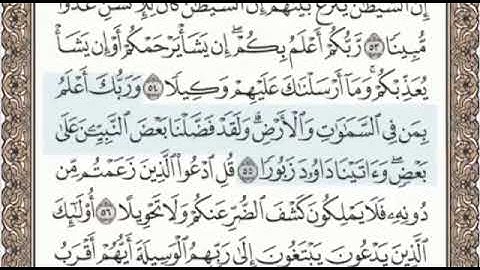 إِنَّ ٱلشَّيْطَٰنَ يَنزَغُ بَيْنَهُمْ إِنَّ ٱلشَّيْطَٰنَ كَانَ لِلْإِنسَٰنِ عَدُوًّا
مُّبِينًا ۝٥٣ رَّبُّكُمْ أَعْلَمُ بِكُمْ ۖ إِن يَشَأْ يَرْحَمْكُمْ أَوْ إِن يَشَأْ
يُعَذِّبْكُمْ ۚ وَمَآ أَرْسَلْنَٰكَ عَلَيْهِمْ وَكِيلًا ۝٥٤ وَرَبُّكَ أَعْلَمُ
بِمَن فِى ٱلسَّمَٰوَٰتِ وَٱلْأَرْضِ ۗ وَلَقَدْ فَضَّلْنَا بَعْضَ ٱلنَّبِيِّـۧنَ عَلَىٰ
بَعْضٍ ۖ وَءَاتَيْنَا دَاوُۥدَ زَبُورًا ۝٥٥ قُلِ ٱدْعُوا۟ ٱلَّذِينَ زَعَمْتُم مِّن
دُونِهِۦ فَلَا يَمْلِكُونَ كَشْفَ ٱلضُّرِّ عَنكُمْ وَلَا تَحْوِيلًا ۝٥٦ أُو۟لَٰٓئِكَ
ٱلَّذِينَ يَدْعُونَ يَبْتَغُونَ إِلَىٰ رَبِّهِمُ ٱلْوَسِيلَةَ أَيُّهُمْ أَقْرَبُ